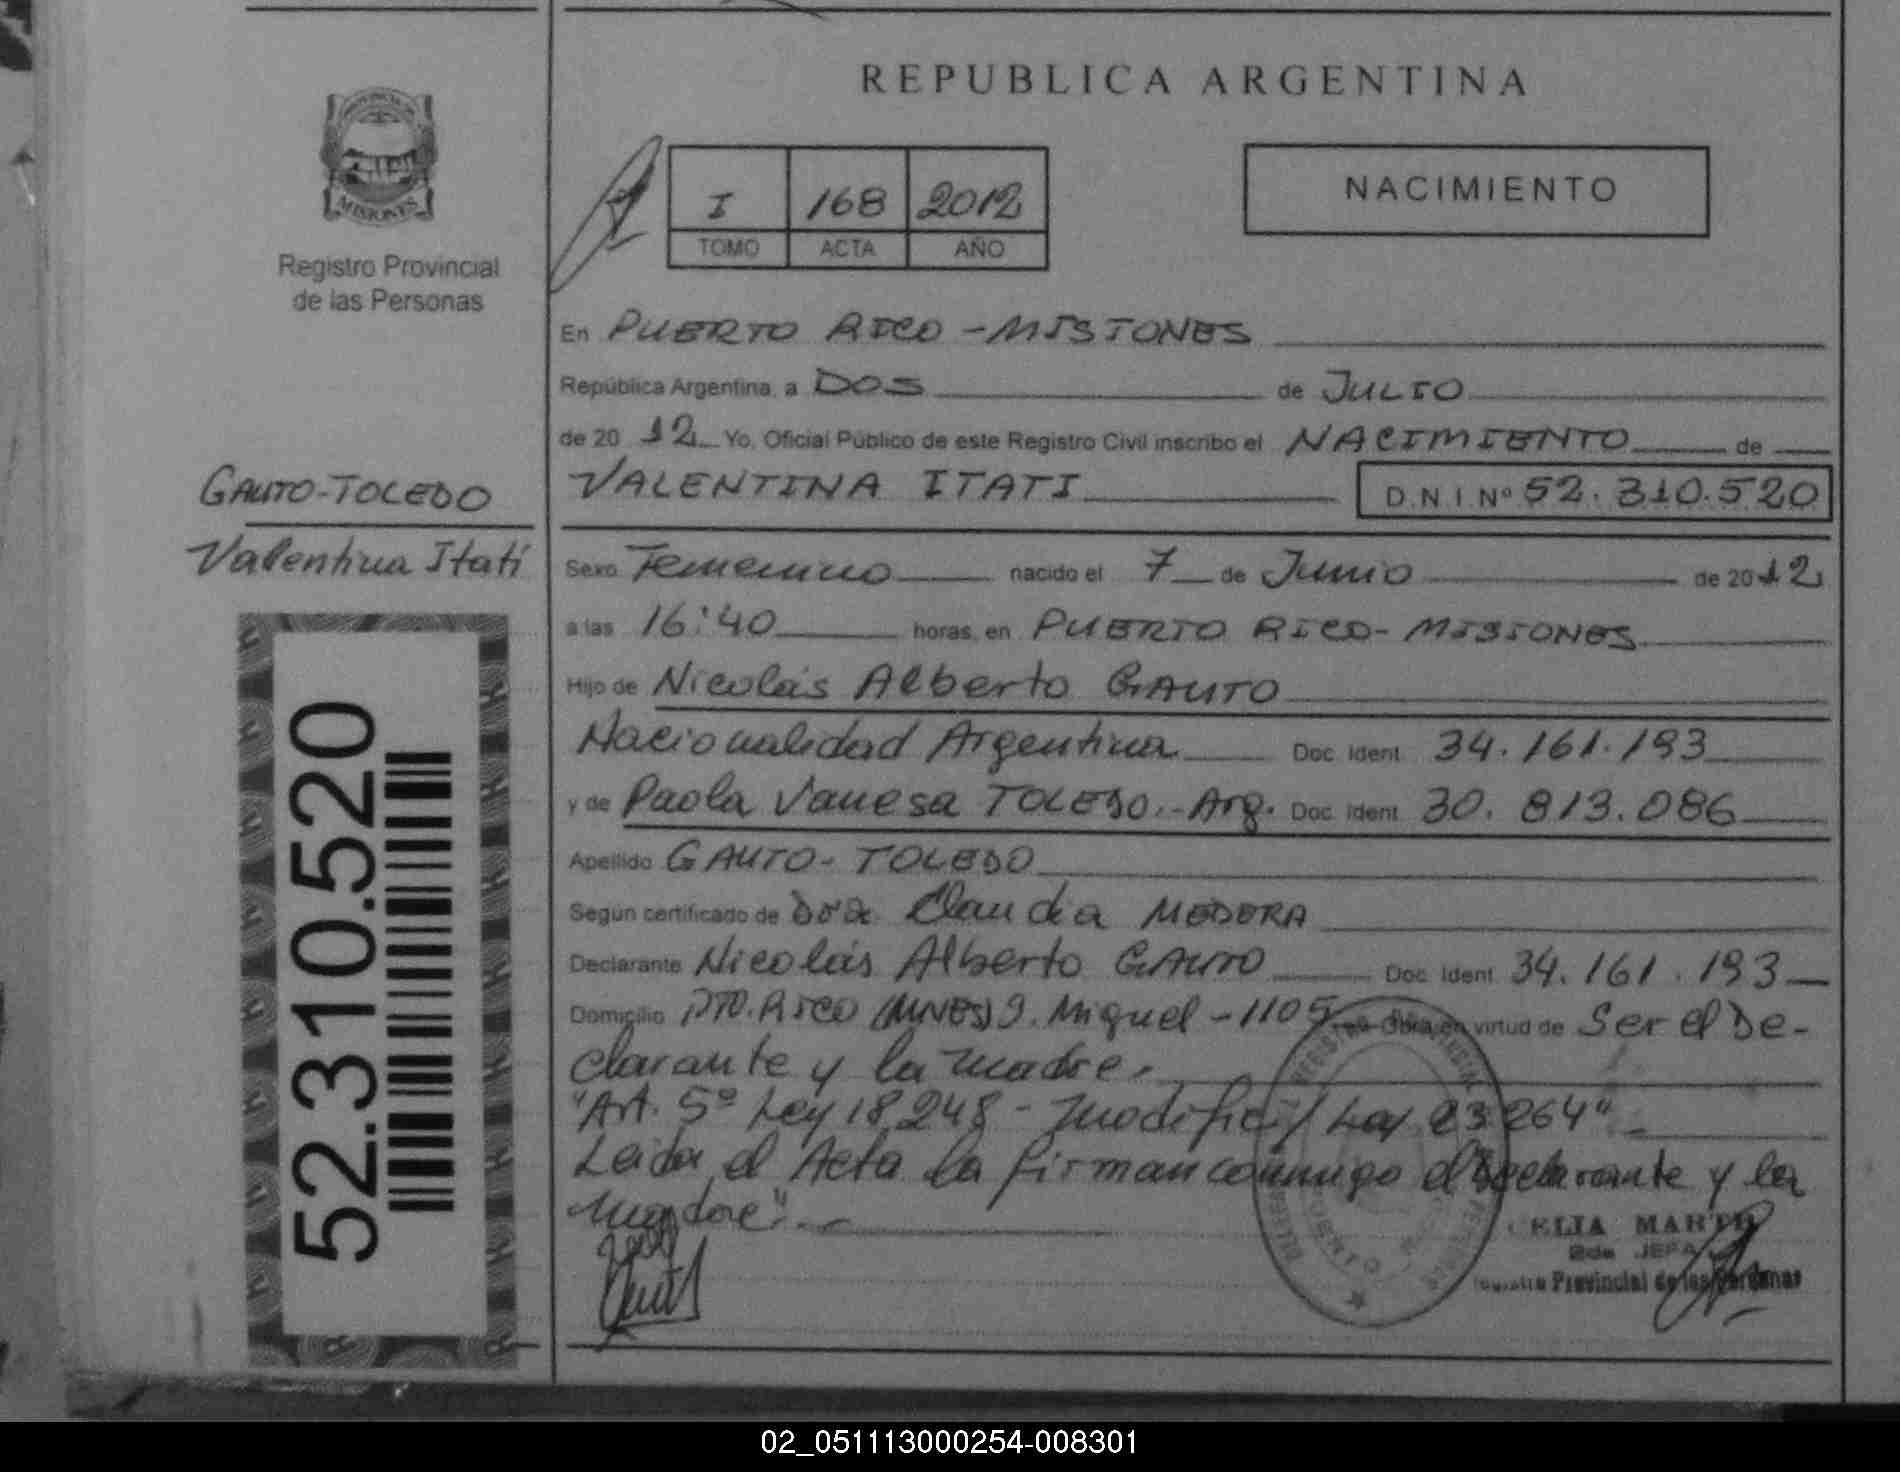 REPUBLICA ARGENTINA
PROVINCIA DE
MISIONES
Registro Provincial
de las Personas
I 168 2012
TOMO ACTA AÑO
NACIMIENTO
En PUERTO RICO - MISIONES
República Argentina, a DOS de JULIO
de 2012 Yo, Oficial Público de este Registro Civil inscribo el NACIMIENTO de
VALENTINA ITATI D.N.I. Nº 52.310.520
GAUTO-TOLEDO
Valentina Itatí
Sexo Femenino nacido el 7 de Junio de 2012
a las 16:40 horas, en PUERTO RICO - MISIONES
Hijo de Nicolás Alberto GAUTO
Nacionalidad Argentina Doc. Ident. 34.161.193
y de Paola Vanesa TOLEDO.-Arg. Doc. Ident. 30.813.086
Apellido GAUTO - TOLEDO
Según certificado de Dra. Claudia MEDERA
Declarante Nicolás Alberto GAUTO Doc. Ident. 34.161.193
Domicilio PTO. RICO (MNES) S. Miguel - 1105 Obra en virtud de Ser el De-
clarante y la madre.
"Art. 5º Ley 18.248 - modific./ Ley 23264"
Leida el Acta la firman conmigo el Declarante y la
madre".-
CELIA MARTA
2da JEFA
Registro Provincial de las Personas
52.310.520
02_051113000254-008301